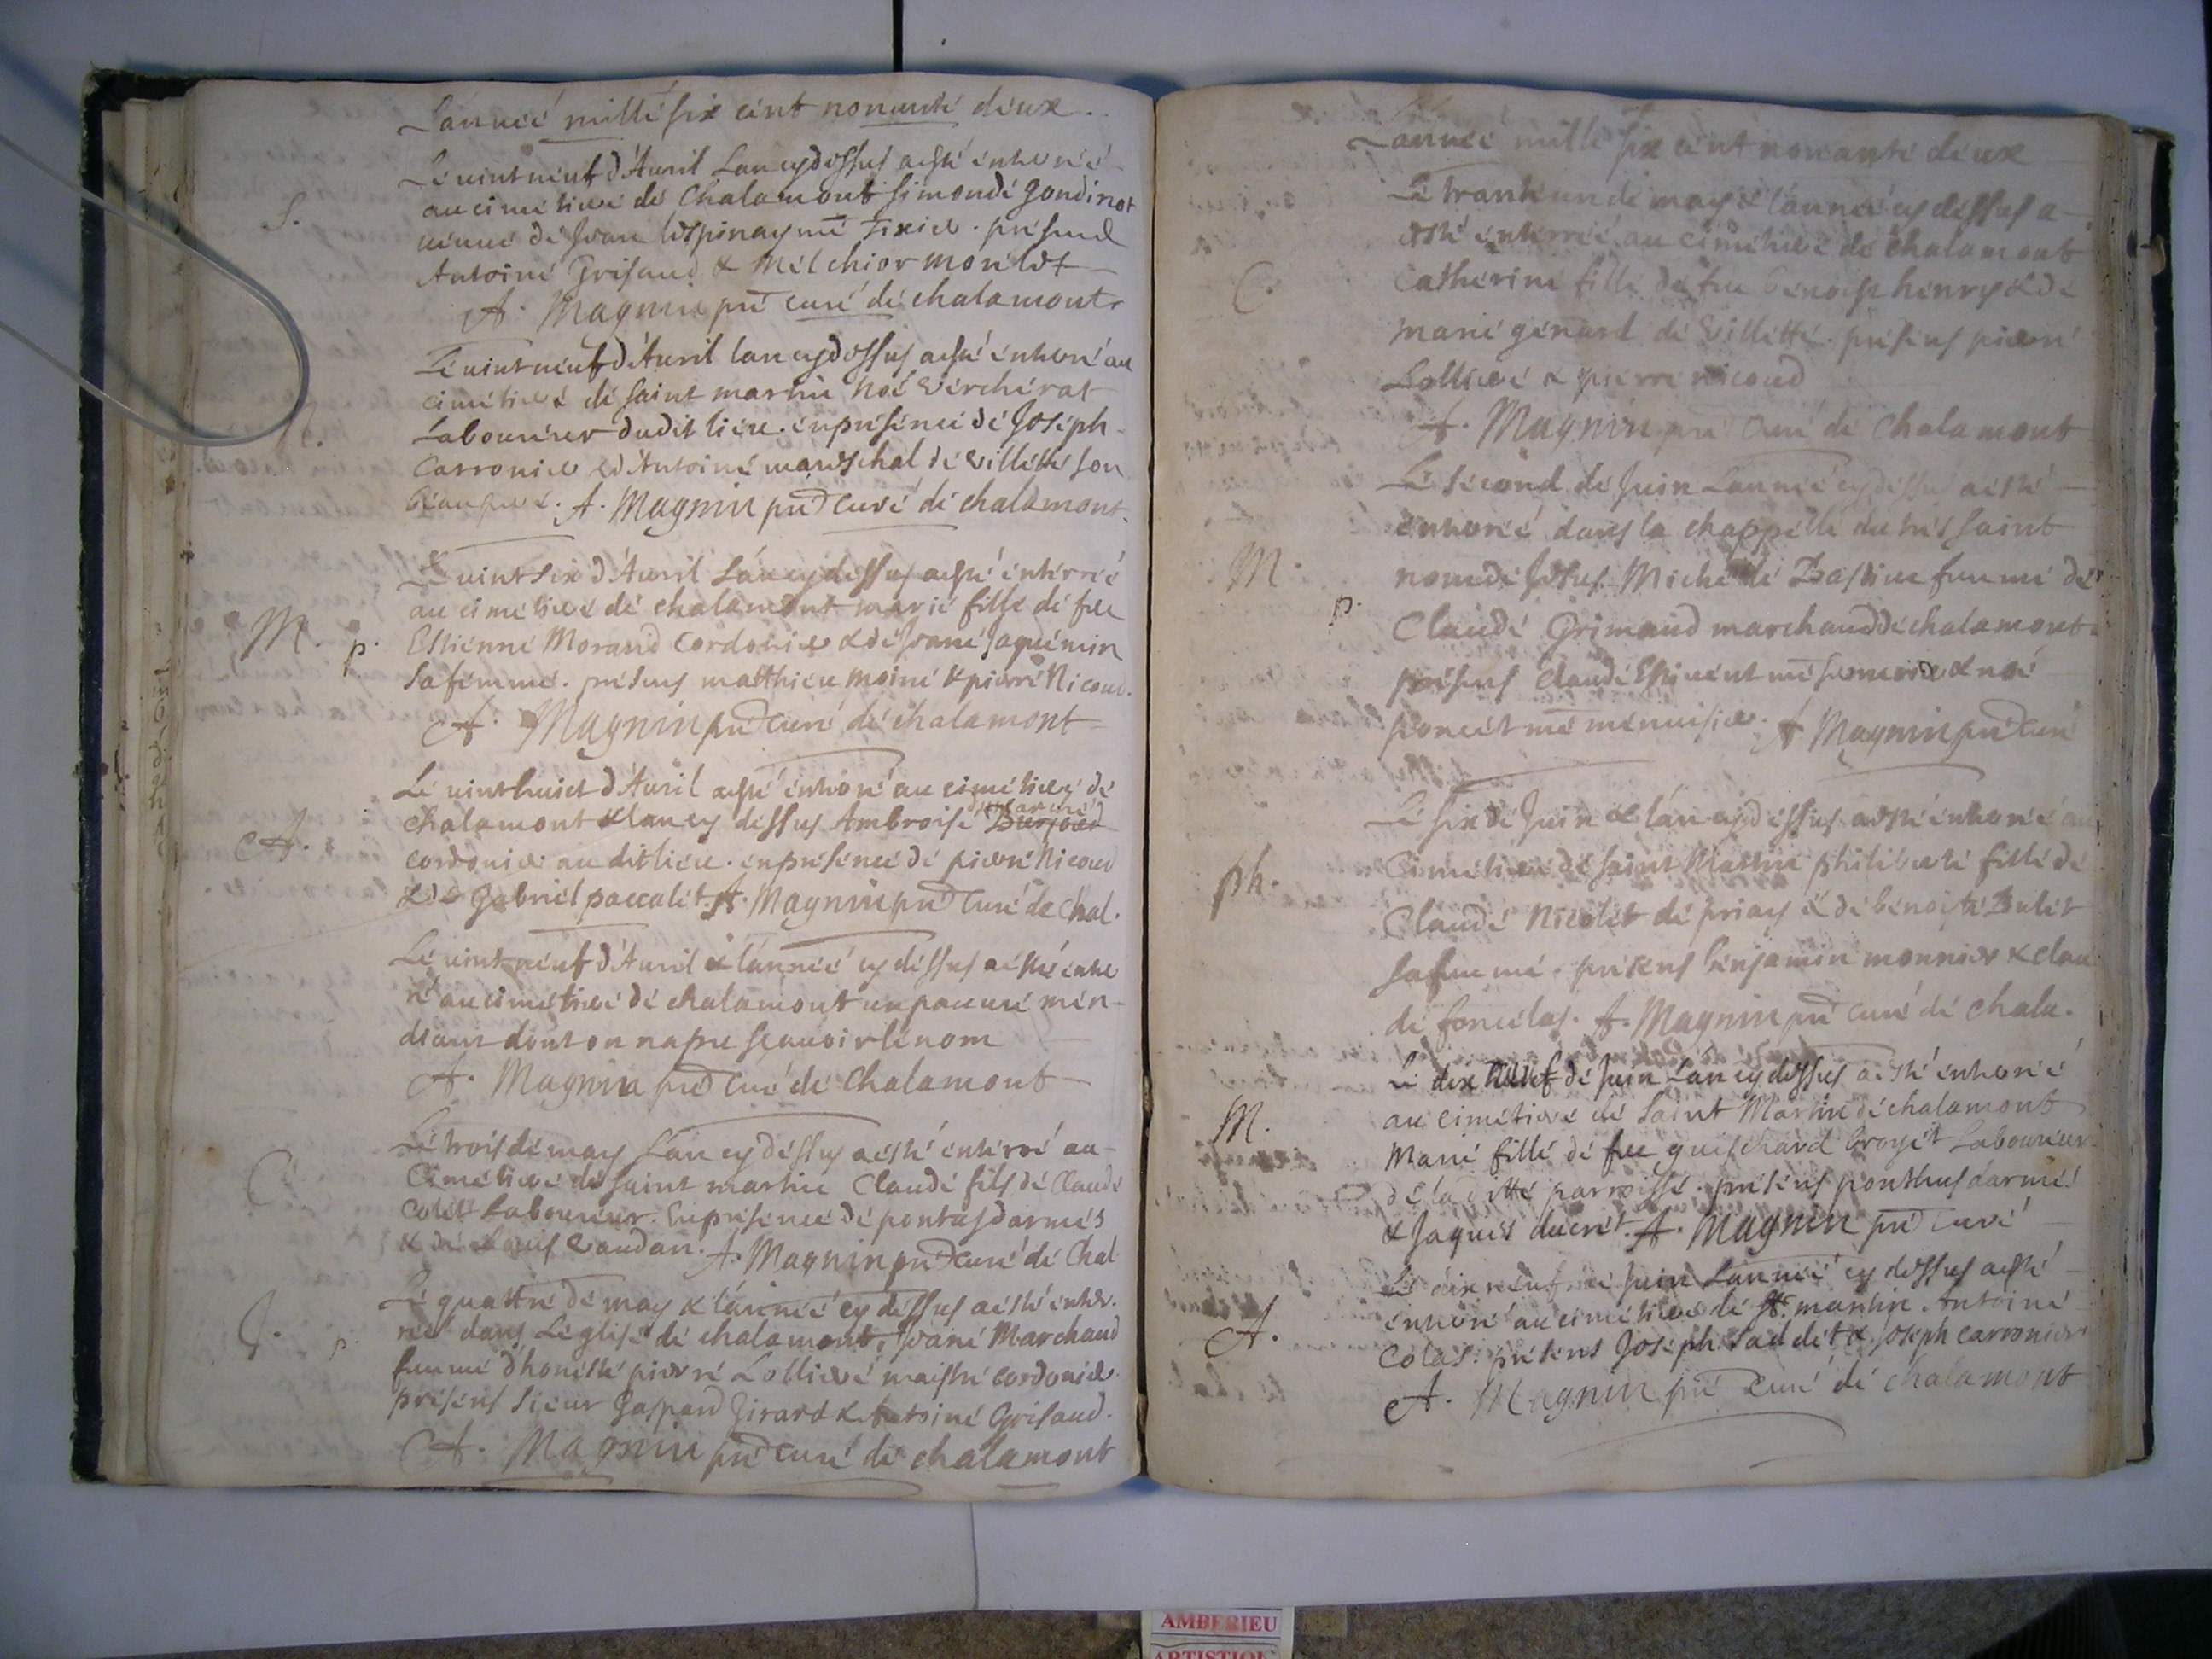 L'année mille six cent nonante deux
Le vint neuf d'Avril L'an cy dessus a esté enterré
S.
au cimetiere de Chalamont Simonde Gondinot
veuve de Jean Lespinay me Tixier. présend
Antoine Grisaud & Melchior Morélet
A. Magnin pre curé de chalamont
Le vint neuf d'Avril lan cy dessus a esté enterré au
cimetiere de saint martin Noé Vercherat
N.
Laboureur dudit lieu. en présence de Joseph
Carronier & d'Antoine mareschal de villette son
beau pere. A. Magnin pre curé de chalamont.
Le vint six d'Avril L'an cy dessus a esté enterrée
au cimetiere de chalamont marie fille de feu
M. p.
Estienne Morand Cordonier & de Jeane Jaquemin
sa femme. présens matthieu moine & pierre Nicoud.
A. Magnin pre curé de chalamont
Le vint huict d'Avril a esté enterré au cimetiere de
ducarme
chalamont & lan cy dessus Ambroise Burjoud
A.
cordonier au dit lieu. en présence de pierre Nicoud
& de Gabriel paccalet. A. Magnin pre curé de Chal.
Le vint neuf d'Avril & l'année cy dessus a esté enter
ré au cimetiere de chalamont un pauvre men-
diant dont on na peu scavoir le nom
A. Magnin pre curé de chalamont
Le trois de may L'an cy dessus a esté enterré au
C.
Cimetiere de saint martin Claude fils de Claude
Colet Laboureur. En présence de pontus darmes
& de Louys Vaudan. A. Magnin pre curé de Chal
Le quattre de may & l'année cy dessus a esté enter-
J. p.
rée dans L'eglise de chalamont, Jeane Marchand
femme d'honeste pierre Lolliere maistre cordonier
présens Sieur Gaspard Girard & Antoine Grisaud.
A. Magnin pre curé de chalamont
L'année mille six cent nonante deux
Le trant un de may & l'année cy dessus a
esté enterrée au cimetiere de chalamont
C.
Catherine fille de feu benoist henry & de
Marie génard de villette. présens pierre
Lolliere & pierre nicoud
A. Magnin pre Curé de Chalamont
Le second de Juin L'année cy dessus a esté
enterré dans la chappelle du tres saint
M. p.
nom de Jesus Michele Bastier femme de
Claude Grimaud marchand de chalamont.
présens Claude Espivent me serrurier & noé
poncet me menuisier. A Magnin pre curé
Le six de Juin & l'an cy dessus a esté enterré au
Cimetiere de saint Martin philiberte fille de
ph.
Claude Nicolet de priay & de benoite Bulet
sa femme. présens benjamin monnier & clau
de foncelas. A. Magnin pre curé de chala.
Le dix neuf de Juin L'an cy dessus a esté enterré
au cimetiere de Saint Martin de chalamont
M.
Marie fille de feu guischard broyet Laboureur
de la ditte parroisse. présens ponthus darmes
& Jaques ducret. A. Magnin pre curé
Le dix neuf de Juin L'année cy dessus a esté
enterré au cimetiere de St. martin Antoine
A.
Colas. présens Joseph Saddet & Joseph Carronier
A. Magnin pre curé de chalamont
AMBERIEU